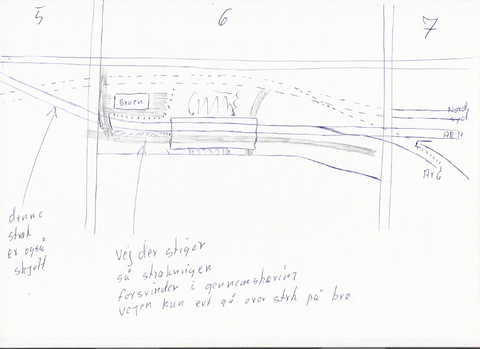 5 6 7
Broen
Nord
syd
denne
strak
er også
skjult
Vej der stiger
så strakningen
forsvinder i gennemskæring
vejen kun evt gå over strk på bro.